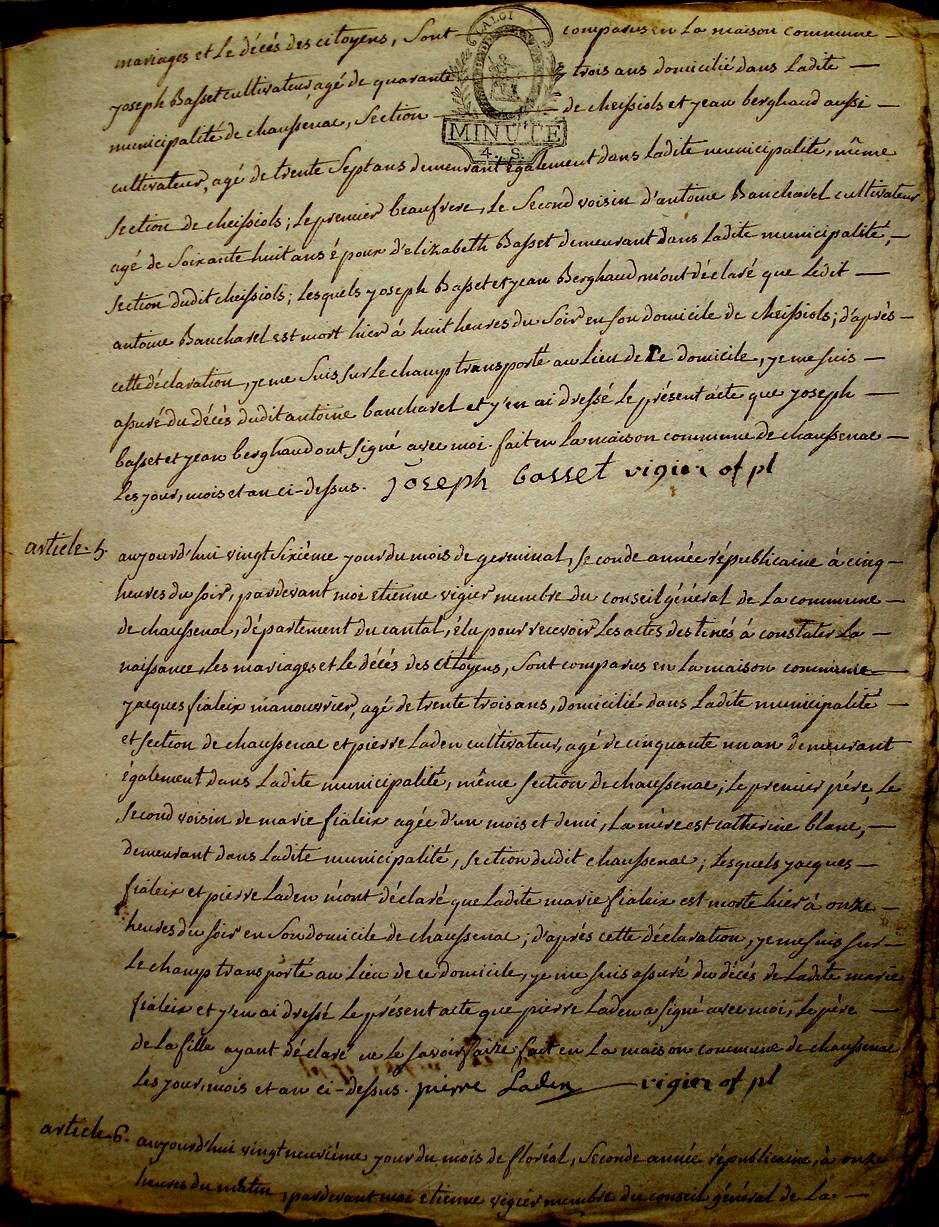 LA LOI
mariages et le décés des citoyens, sont comparus en la maison commune —
joseph Basset cultivateur, agé de quarante trois ans domicilié dans ladite —
municipalité de chaussenac, section — de cheissiols et jean berghaud aussi —
MINUTE
4. S.
cultivateur, agé de trente sept ans demeurant également dans ladite municipalité, même
section de cheissiols; le premier beaufrere, le second voisin d'antoine Bancharel cultivateur
agé de soixante huit ans époux d'elizabeth Basset demeurant dans ladite municipalité, —
section dudit cheissiols; lesquels joseph Basset et jean Berghaud m'ont déclaré que ledit —
antoine Bancharel est mort hier à huit heures du soir en son domicile de cheissiols; d'après —
cette déclaration, je me suis sur le champ transporté au lieu de ce domicile, je me suis —
assuré du décès dudit antoine bancharel et j'en ai dressé le présent acte que joseph —
basset et jean berghaud ont signé avec moi. fait en la maison commune de chaussenac —
les jour, mois et an ci-dessus. joseph basset vigier of pl
article. 5. aujourd'hui vingt sixième jour du mois de germinal, seconde année républicaine à cinq —
heures du soir, pardevant moi etienne vigier membre du conseil général de la commune —
de chaussenac, département du cantal, élu pour recevoir les actes destinés à constater la —
naissance, les mariages et le décés des citoyens, sont comparus en la maison commune —
jacques fialeix manouvrier, agé de trente trois ans, domicilié dans ladite municipalité —
et section de chaussenac et pierre Laden cultivateur, agé de cinquante un an demeurant
également dans ladite municipalité, même section de chaussenac; le premier père, le
second voisin de marie fialeix agée d'un mois et demi, la mère est catherine blanc, —
demeurant dans ladite municipalité, section dudit chaussenac; lesquels jacques —
fialeix et pierre Laden m'ont déclaré que ladite marie fialeix est morte hier à onze —
heures du soir en son domicile de chaussenac; d'après cette déclaration, je me suis sur —
le champ transporté au lieu de ce domicile, je me suis assuré du décés de ladite marie
fialeix et j'en ai dressé le présent acte que pierre Laden a signé avec moi, le père —
de la fille ayant déclaré ne le savoir faire fait en la maison commune de chaussenac
les jour, mois et an ci-dessus. pierre Laden — vigier of pl
article. 6. aujourd'hui vingt neuvième jour du mois de floréal, seconde année républicaine, à onze
heures du matin, pardevant moi etienne vigier membre du conseil général de la —